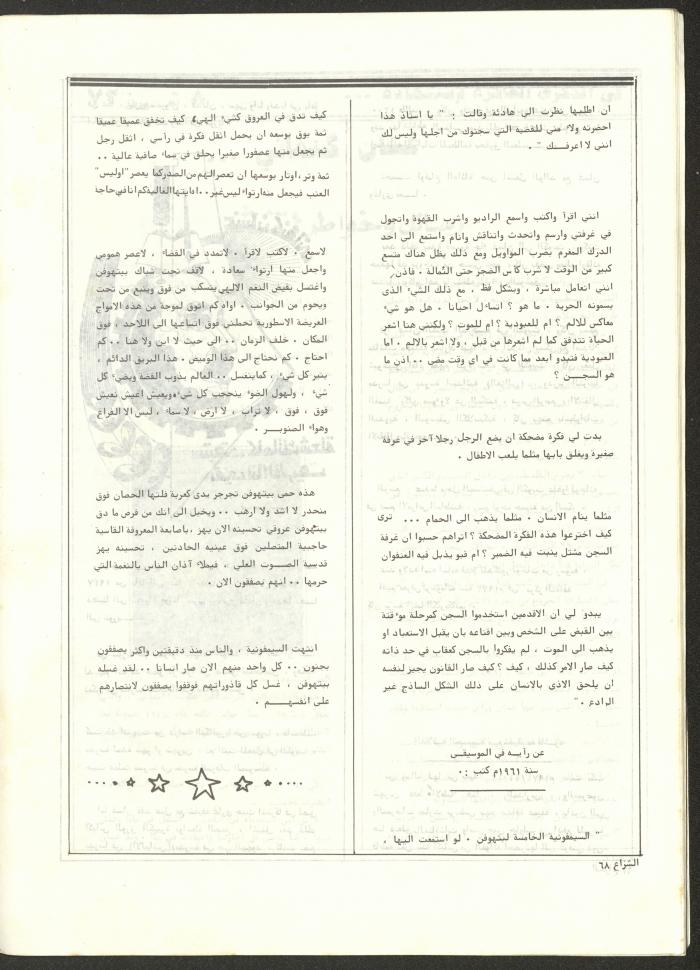 ان اطلبها نظرت الى هادئة وقالت : " يا استاذ هذا
احضرته ولا مني للقضية التي سجنوك من اجلها وليس لك
انني لا اعرفـك " .
انني اقرأ واكتب واسمع الراديو واشرب القهوة واتجول
في غرفتي وارسم واتحدث واتناقش وانام واستمع الى احد
الدرك المغرم بضرب المواويل ومع ذلك يظل هناك متسع
كبير من الوقت لاشرب كأس الضجر حتى الثمالة ، فاذن
انني اتعامل مباشرة ، وبشكل فظ ، مع ذلك الشيء الذي
يسمونه الحرية . ما هو ؟ اتساءل احيانا . هل هو شيء
معاكس للالم ؟ ام للعبودية ؟ ام للموت ؟ ولكنني هنا اشعر
الحياة تتدفق كما لم اشعرها من قبل ، ولا اشعر بالالم . اما
العبودية فتبدو ابعد مما كانت في اي وقت مضى .. اذن ما
هو السجـــن ؟
بدت لي فكرة مضحكة ان يضع الرجل رجلا آخر في غرفة
صغيرة ويغلق بابها مثلما يلعب الاطفال .
مثلما ينام الانسان . مثلما يذهب الى الحمام ... ترى
كيف اخترعوا هذه الفكرة المضحكة ؟ اتراهم حسبوا ان غرفة
السجن مشتل ينبت فيه الضمير ؟ ام قبو يذبل فيه العنفوان
يبدو لي ان الاقدمين استخدموا السجن كمرحلة موءقتة
بين القبض على الشخص وبين اقناعه بان يقبل الاستعباد او
يذهب الى الموت ، لم يفكروا بالسجن كعقاب في حد ذاته
كيف صار الامر كذلك ، كيف ؟ كيف صار القانون يجيز لنفسه
ان يلحق الاذى بالانسان على ذلك الشكل الساذج غير
الرادع . "
عن رأيــه في الموسيقـى
سنة ١٩٦١م كتب :٠
" السيمفونية الخامسة لبتهوفن . لو استمعت اليها ،
كيف تدق في العروق كشيء الهي، كيف تخفق عميقا عميقا
ثمة بوق بوسعه ان يحمل اثقل فكرة في رأسي ، اثقل رجل
ثم يجعل منها عصفورا صغيرا يحلق في سماء صافية عالية ..
ثمة وتر ، اوتار بوسعها ان تعصر الهم من الصدر كما يعصر "اوليس"
العنب فيجعل منه ارتواء ليس غير .. اه ايتها العالية كم انا في حاجة
لاسمع . لاكتب لاقرأ . لاتمدد في الفضاء ، لاعصر همومي
واجعل منها ارتواء سعادة ، لاقف تحت شباك بيتهوفن
واغتسل بفيض النغم الالهي يسكب من فوق وينبع من تحت
ويحوم من الجوانب . اواه كم اتوق لموجة من هذه الامواج
العريضة الاسطورية تحملني فوق اتساعها الى اللاحد ، فوق
المكان . خلف الزمان .. الى حيث لا اين ولا هنا .. كم
احتاج . كم نحتاج الى هذا الوميض . هذا البريق الدائم ،
ينير كل شيء ، كما يغسل .. العالم يذوب الفضة ويضيء كل
شيء ، ولهول الضوء ينحجب كل شيء ويعيش اعيش نعيش
فوق ، فوق ، لا تراب ، لا ارض ، لا سماء ، ليس الا الفراغ
وهواء الصنوبـر .
هذه حمى بيتهوفن تجرجر يدي كعربة فلتها الحصان فوق
منحدر لا اشد ولا ارهب .. ويخيل الى انك من فرط ما دق
بيتهوفن عروقي تحسينه الان يهز ، باصابعه المعروفة القاسية
حاجبيه المتصلين فوق عينيه الحادتين ، تحسينه يهز
قدسية الصــوت العلي ، فيملاء آذان الناس بالنغمة التي
حرمها .. انهم يصفقون الان .
انتهت السيمفونية ، والناس منذ دقيقتين واكثر يصفقون
بجنون .. كل واحد منهم الان صار انسانا .. لقد غسله
بيتهوفن ، غسل كل قاذوراتهم فوقفوا يصفقون لانتصارهم
على انفسهــم .
الشراع ٦٨